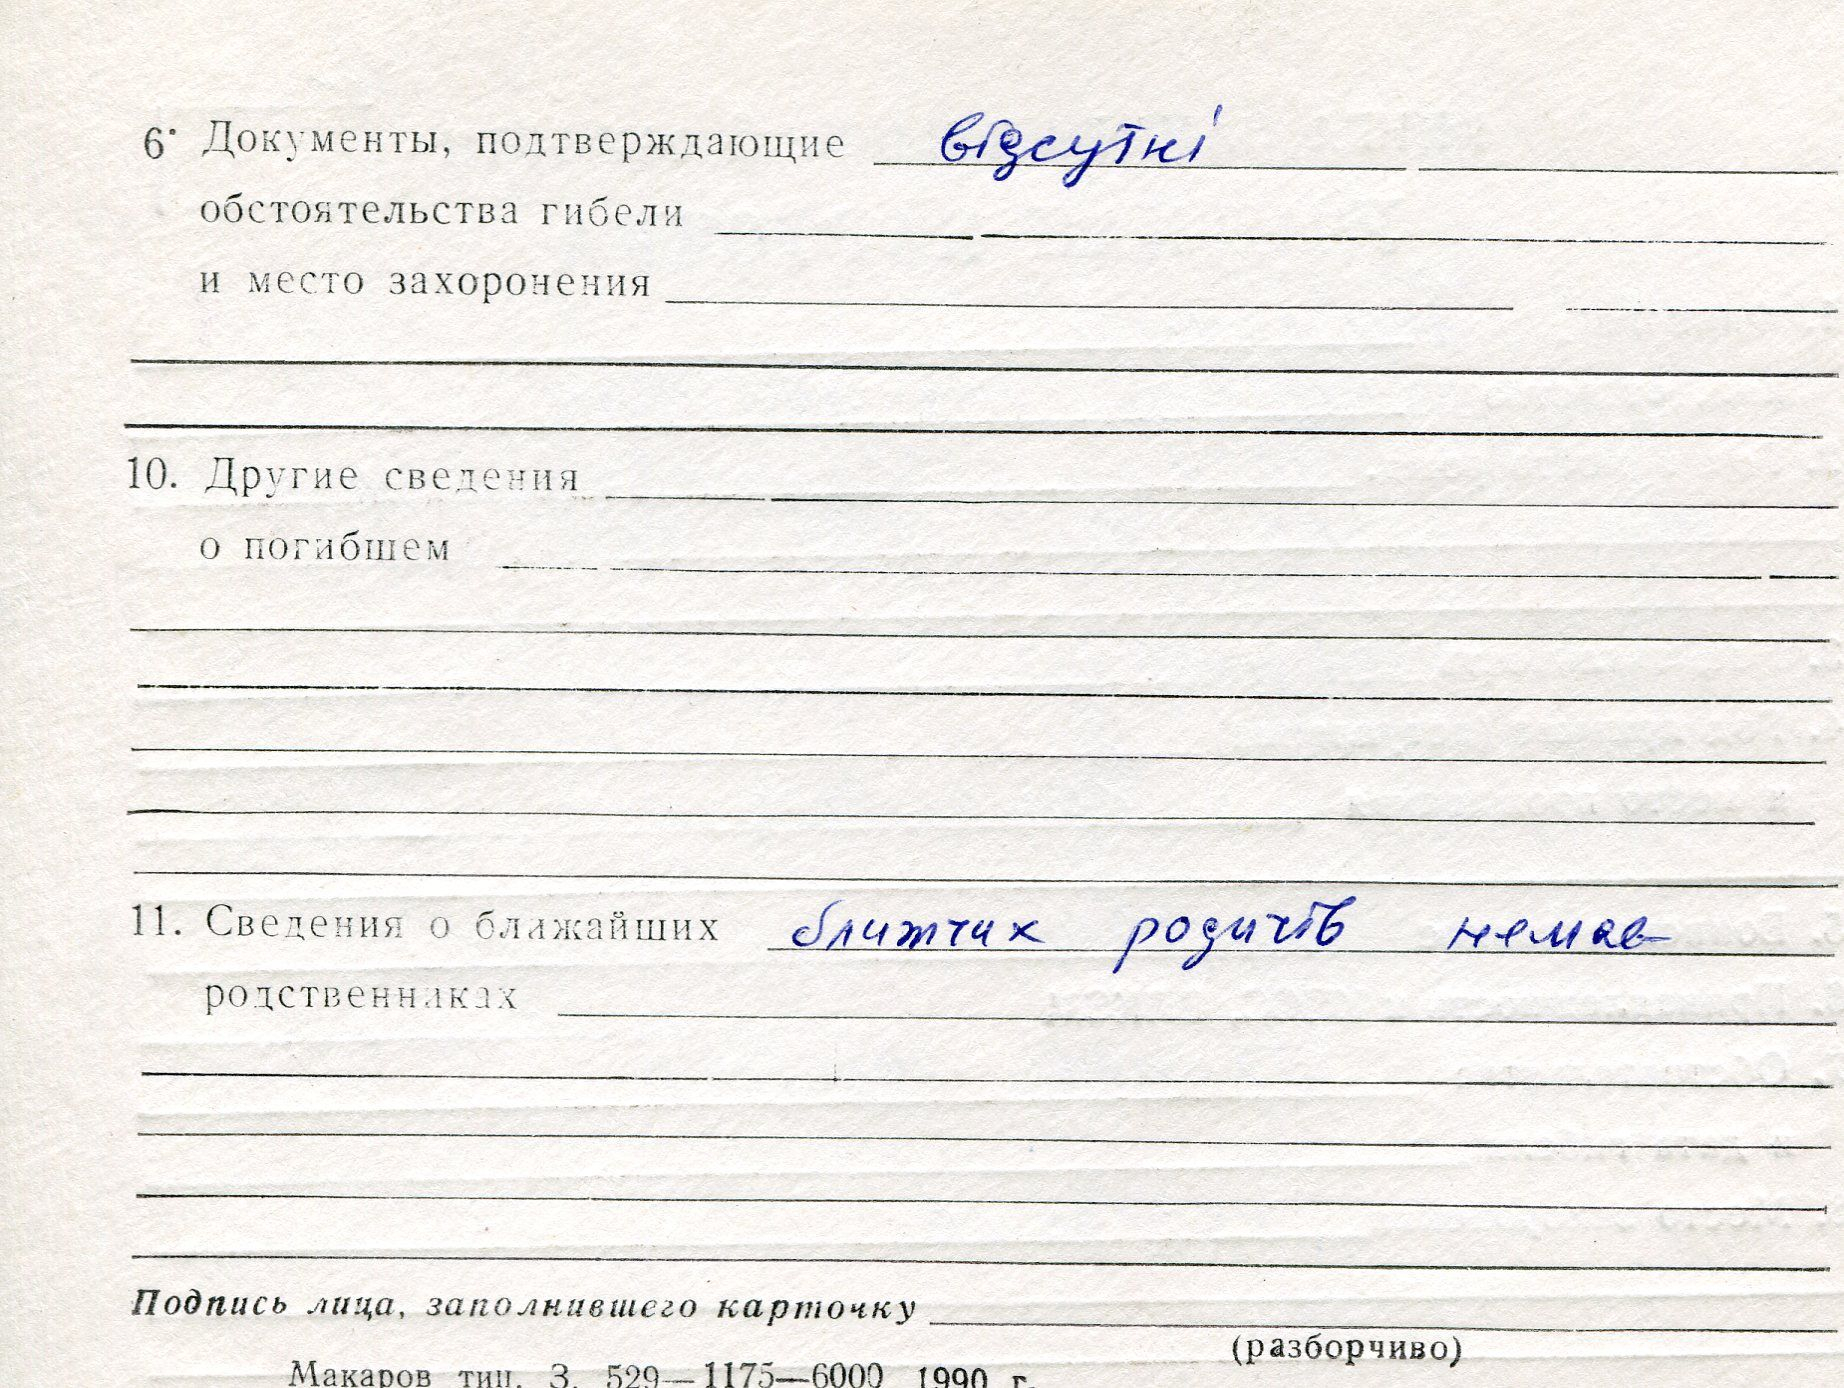 6. Документы, подтверждающие відсутні
обстоятельства гибели
и место захоронения
10. Другие сведения
о погибшем
11. Сведения о ближайших ближчих родичів немає
родственниках
Подпись лица, заполнившего карточку
(разборчиво)
Макаров тип. З. 529—1175—6000 1990 г.